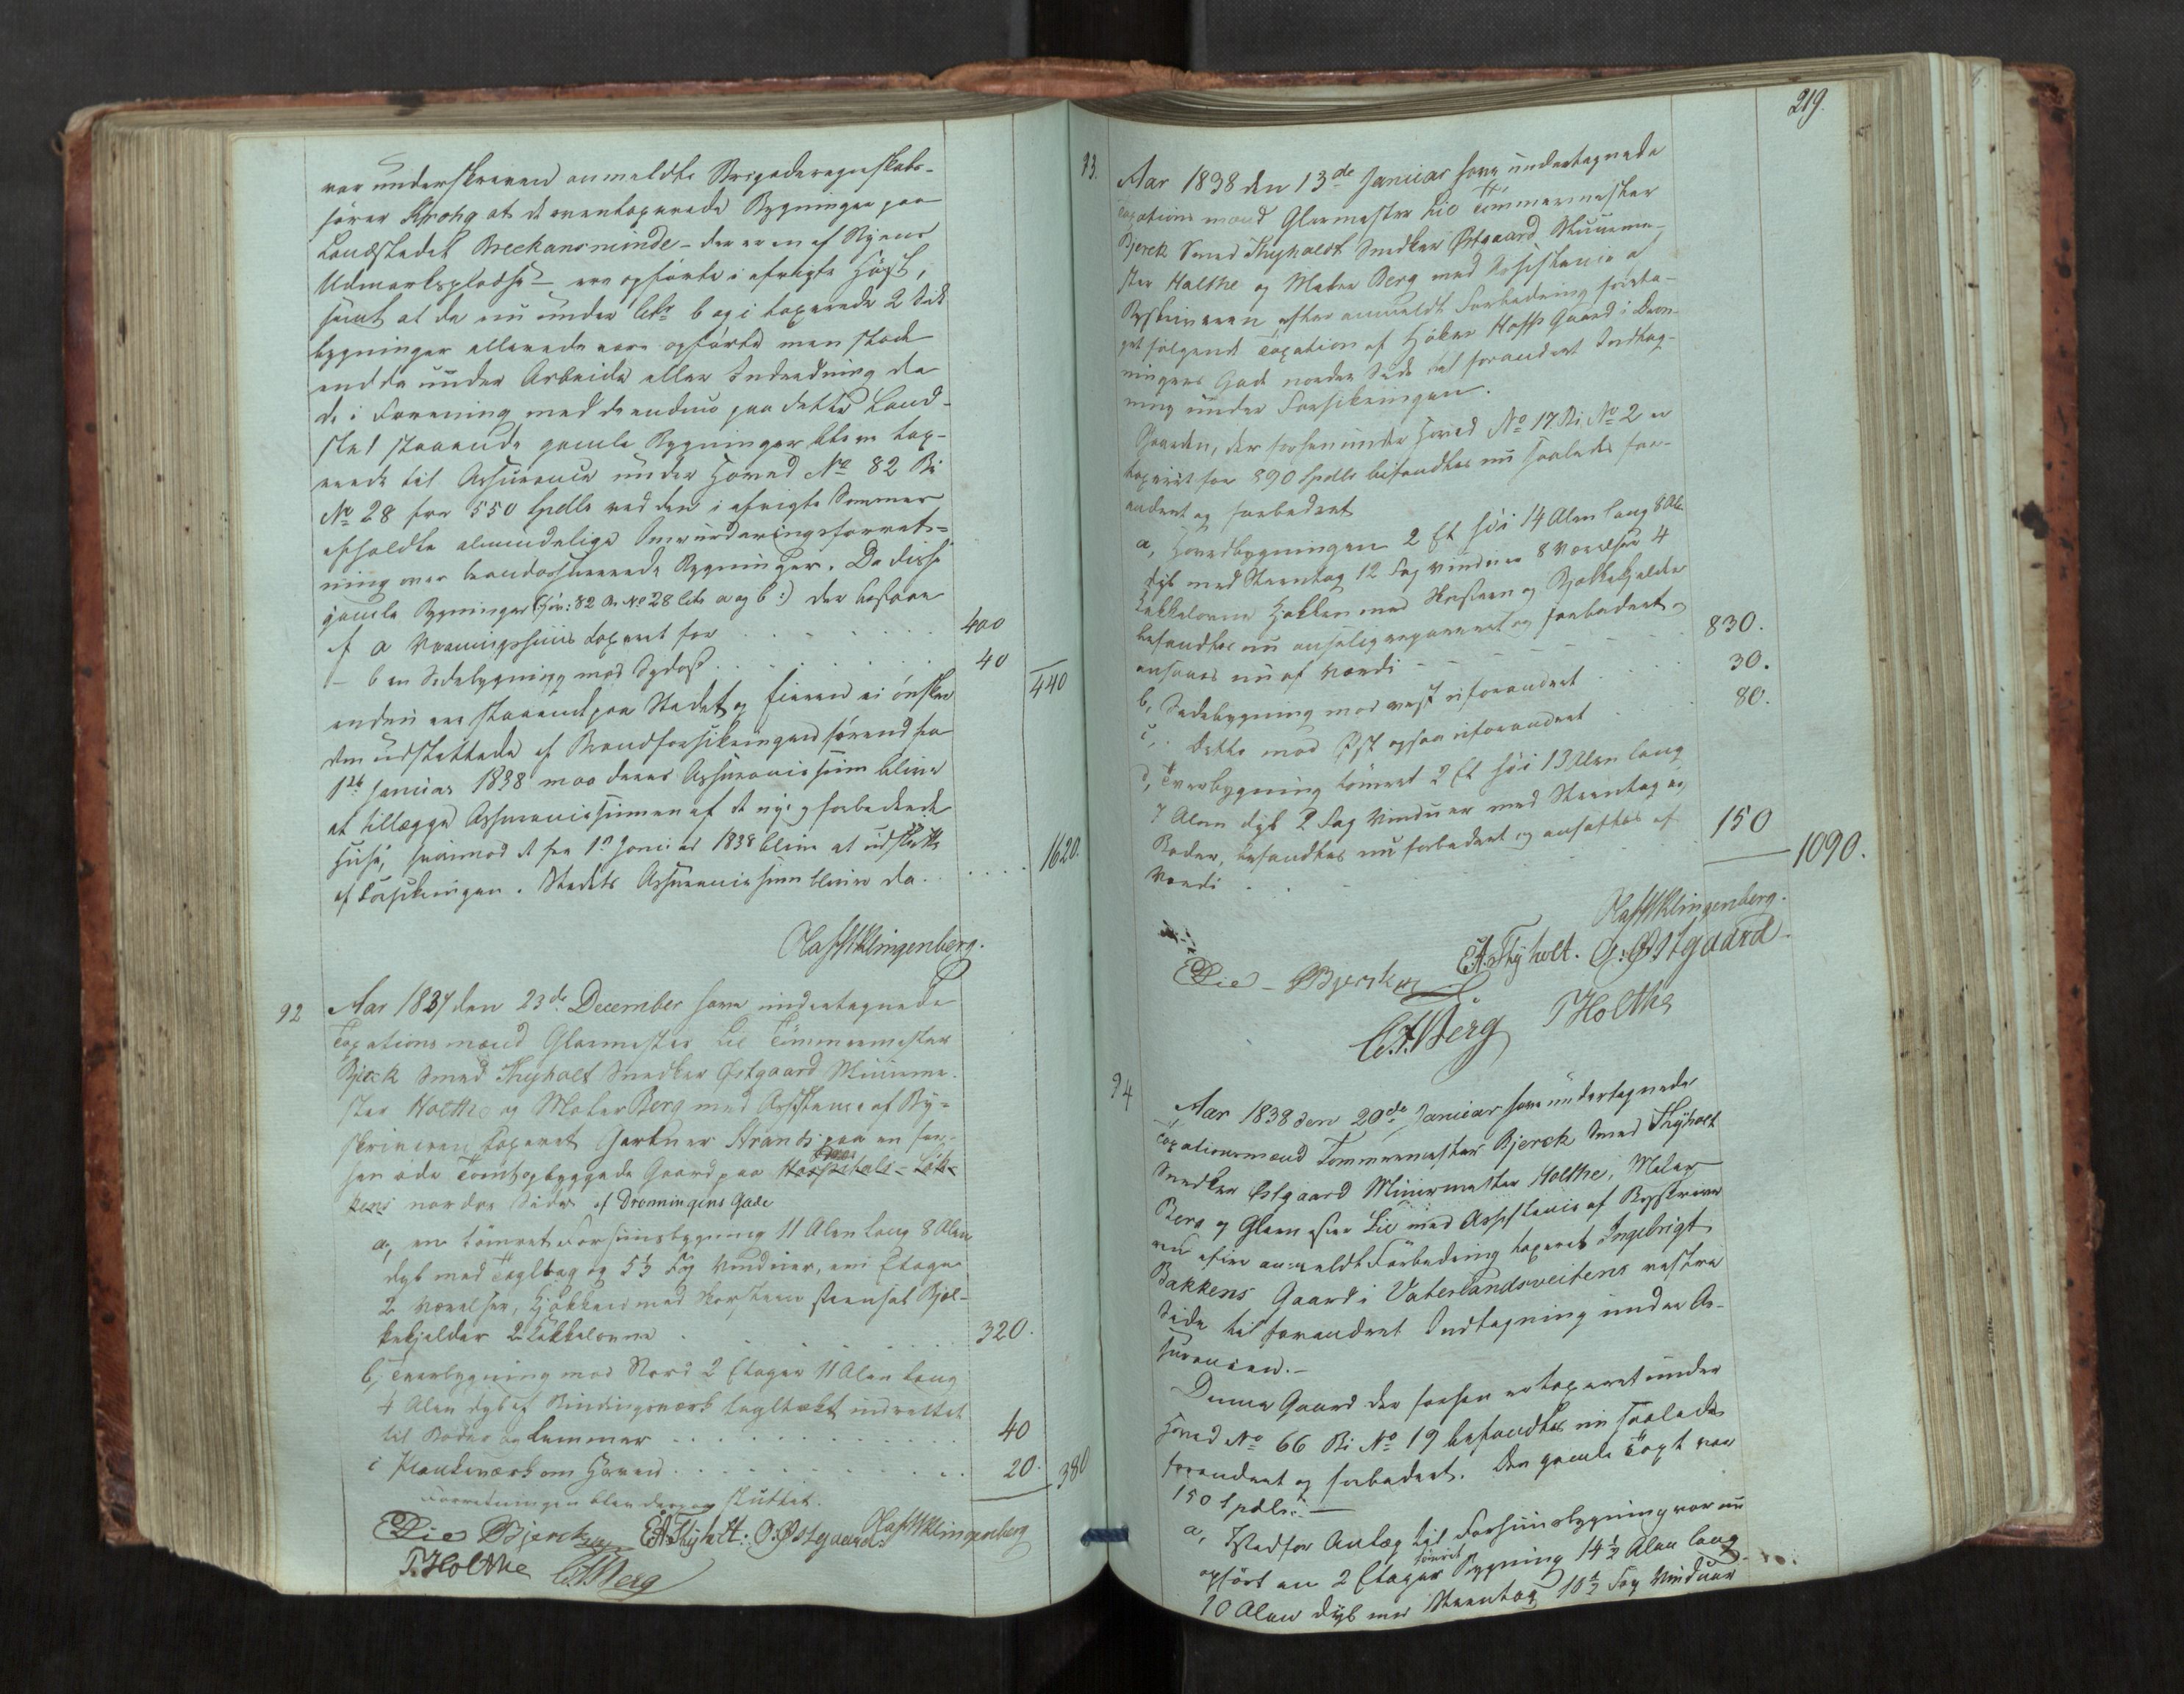 var underskreven anmeldte Brigaderegnskabs-
fører Krohg at de oventaxerede Bygninger paa
Landstedet Breckansminde – der er en af Byens
Udmarkspladse – ere opførte i afvigte Høst,
samt at de nu under litr b og c taxerede 2 Side
bygninger allerede vare opførte men stode
endda under Arbeide eller Indredning da
de i Forening med de endnu paa dette Land-
sted staaende gamle Bygninger bleve tax-
erede til Assurance under Hoved No 82 Bi
No 28 for 550 Spdlr ved den i afvigte Sommer
afholdte almindelige Omvurderingsforret-
ning over brandassurerede Bygninger. Da disse
gamle Bygninger (Hov: 82 Bi No 28 litr a og b :) der bestaae
af a Vaaningshuus taxeret for . . . . . . 400
– b en Sidebygning mod Sydost . . . . . . 40
440
endnu ere staaende paa Stedet og Eieren ei ønsker
dem udslettede af Brandforsikringen førend fra
1ste Januar 1838 maa deres Assurancesum blive
at tillægge Assurancesummen af de nye og forbedrede
Huse, hvorimod de fra 1ste Januar 1838 blive at udslette
af Forsikringen. Stedets Assurancesum bliver da . . . . . 1620.
Hass Klingenberg.
92 Aar 1837 den 23de December have undertegnede
Taxationsmænd Glarmester Lie Tömmermester
Bjerck Smed Thyholt Snedker Östgaard Muurme-
ster Holthe og Maler Berg med Assistance af By-
skriveren taxeret Gartner Strands paa en for-
hen øde Tomt opbyggede Gaard paa Hospitals-Løk-
kens nordre Side af Dronningens Gade
a, en tømret Forhuusbygning 11 Alen lang 8 Alen
dyb med Tegltag og 5½ Fag Vinduer, een Etage
2 Værelser, Kjøkken med Skorsteen steensat Bjel-
kekjelder 2 Kakkelovne . . . . . 320.
b, Tverbygning mod Nord 2 Etager 11 Alen lang
4 Alen dyb af Bindingsværk tegltækt indrettet
til Boder og Lemmer . . . . . . . . 40
c Plankeværk om Haven . . . . . . . . 20. 380
Forretningen blev derpaa sluttet.
Lie Bjerck EA. Thyholt. O: Östgaard Hass Klingenberg
T. Holthe C.F. Berg
219.
93. Aar 1838 den 13de Januar have undertegnede
Taxationsmænd Glarmester Lie Tömmermester
Bjerck Smed Thyholdt Snedker Östgaard Muurme-
ster Holthe og Maler Berg med Assistance af
Byskriveren efter anmeldt Forbedring foreta-
get følgende Taxation af Høker Hoffs Gaard i Dron-
ningens Gade nordre Side til forandret Indtag-
ning under Forsikringen.
Gaarden, der forhen under Hoved No 17 Bi No 2 er
taxeret for 890 Spdlr befandtes nu saaledes for-
andret og forbedret
a, Hovedbygningen 2 Et höi 14 Alen lang 8 Alen
dyb med Steentag 12 Fag Vinduer 8 Værelser 4
Kakkelovne Kjøkken med Skorsteen og Bjelkekjelder
befandtes nu anseelig repareret og forbedret og
ansaaes nu af Værdi – – – – – 830.
b, Sidebygning mod Vest uforandret . . . 30.
c, Dette mod Öst ogsaa uforandret . . 80.
d, Tverbygning tömret 2 Et höi 13 Alen lang
7 Alen dyb 2 Fag Vinduer med Steentag og
Boder, befandtes nu forbedret og ansattes af
Værdi . . . . . . 150
1090.
Hass Klingenberg.
Lie – Bjerck EA. Thyholt. O: Östgaard
C.F. Berg T Holthe
94 Aar 1838 den 20de Januar have undertegnede
Taxationsmænd Tømmermester Bjerck Smed Thyholt
Snedker Östgaard Muurmester Holthe, Maler
Berg og Glarmester Lie med Assistance af Byskrive-
ren efter anmeldt Forbedring taxeret Ingebrigt
Bakkens Gaard i Vaterlandsveitens vestre
Side til forandret Indtagning under As-
surancen. –
Denne Gaard der forhen er taxeret under
Hoved No 66 Bi No 19 befandtes nu saaledes
forandret og forbedret. Den gamle Taxt var
150 Spdlr. –
a, Istedfor Anlæg til Forhuusbygning var nu
opført en 2 Etager tömret Bygning 14½ Alen lang
10 Alen dyb med Steentag 10½ Fag Vinduer